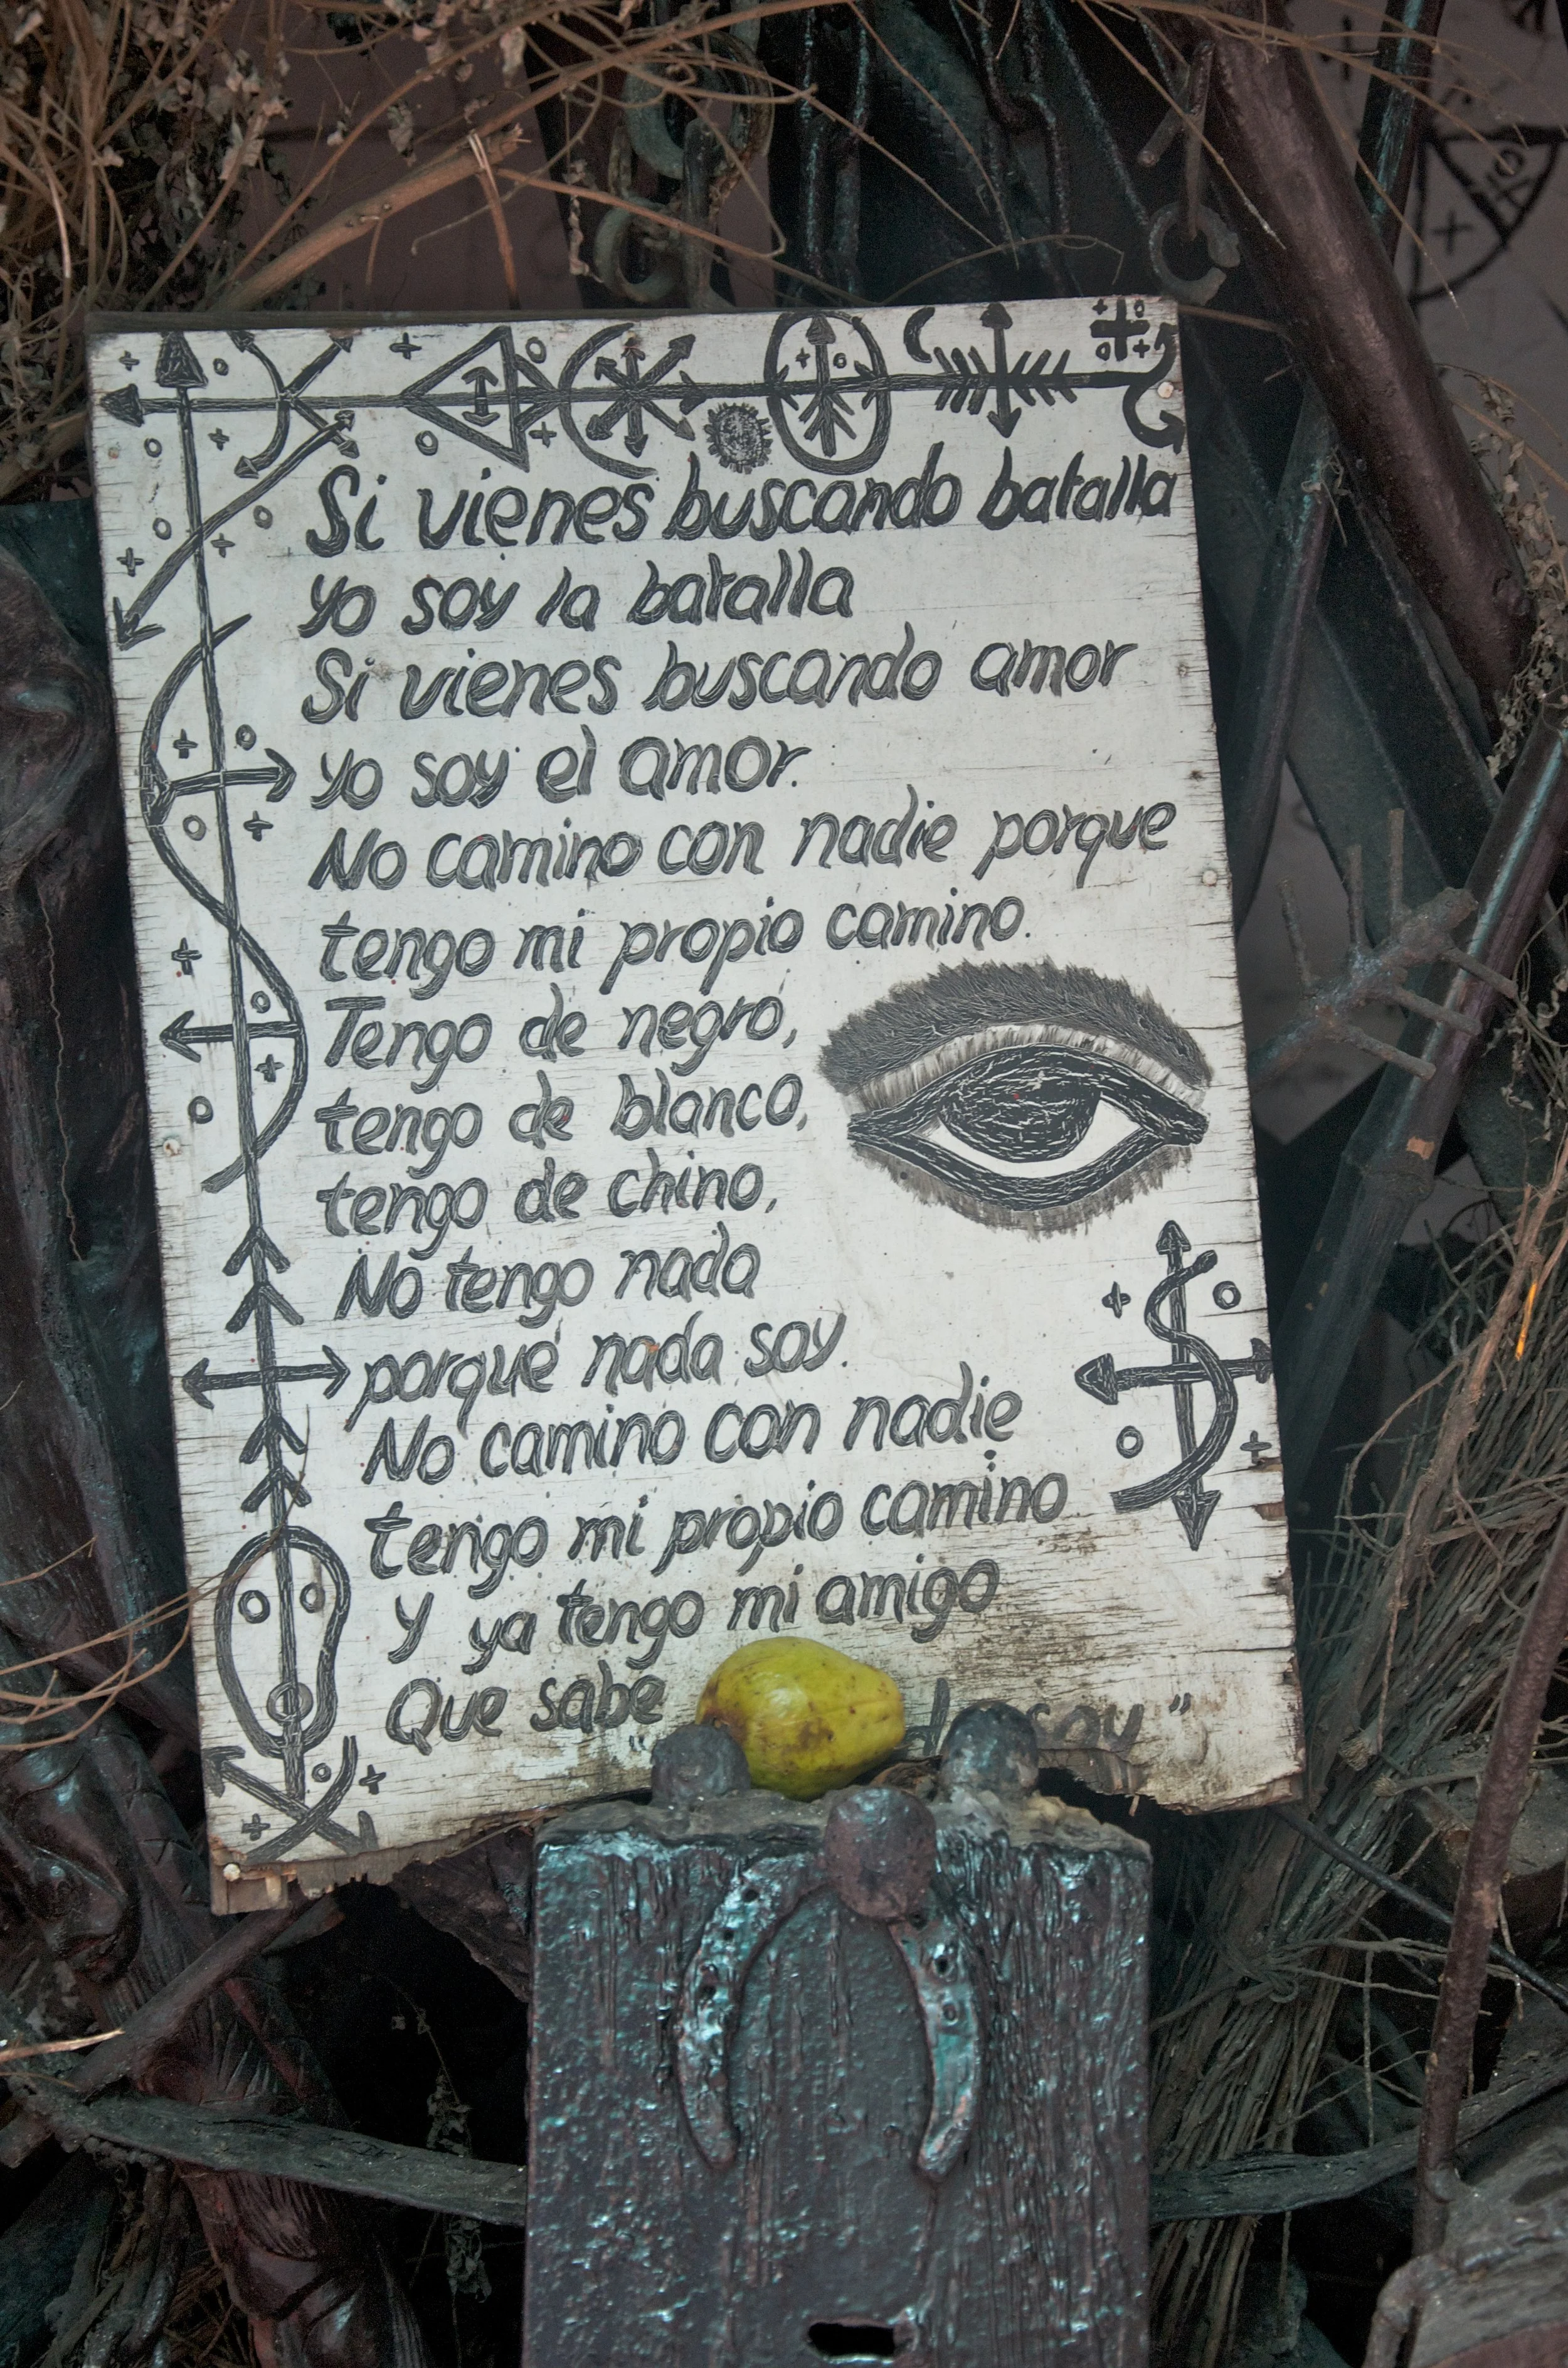 Si vienes buscando batalla
yo soy la batalla
Si vienes buscando amor
yo soy el amor.
No camino con nadie porque
tengo mi propio camino.
Tengo de negro,
tengo de blanco,
tengo de chino,
No tengo nada
porque nada soy.
No camino con nadie
tengo mi propio camino
Y ya tengo mi amigo
Que sabe soy"